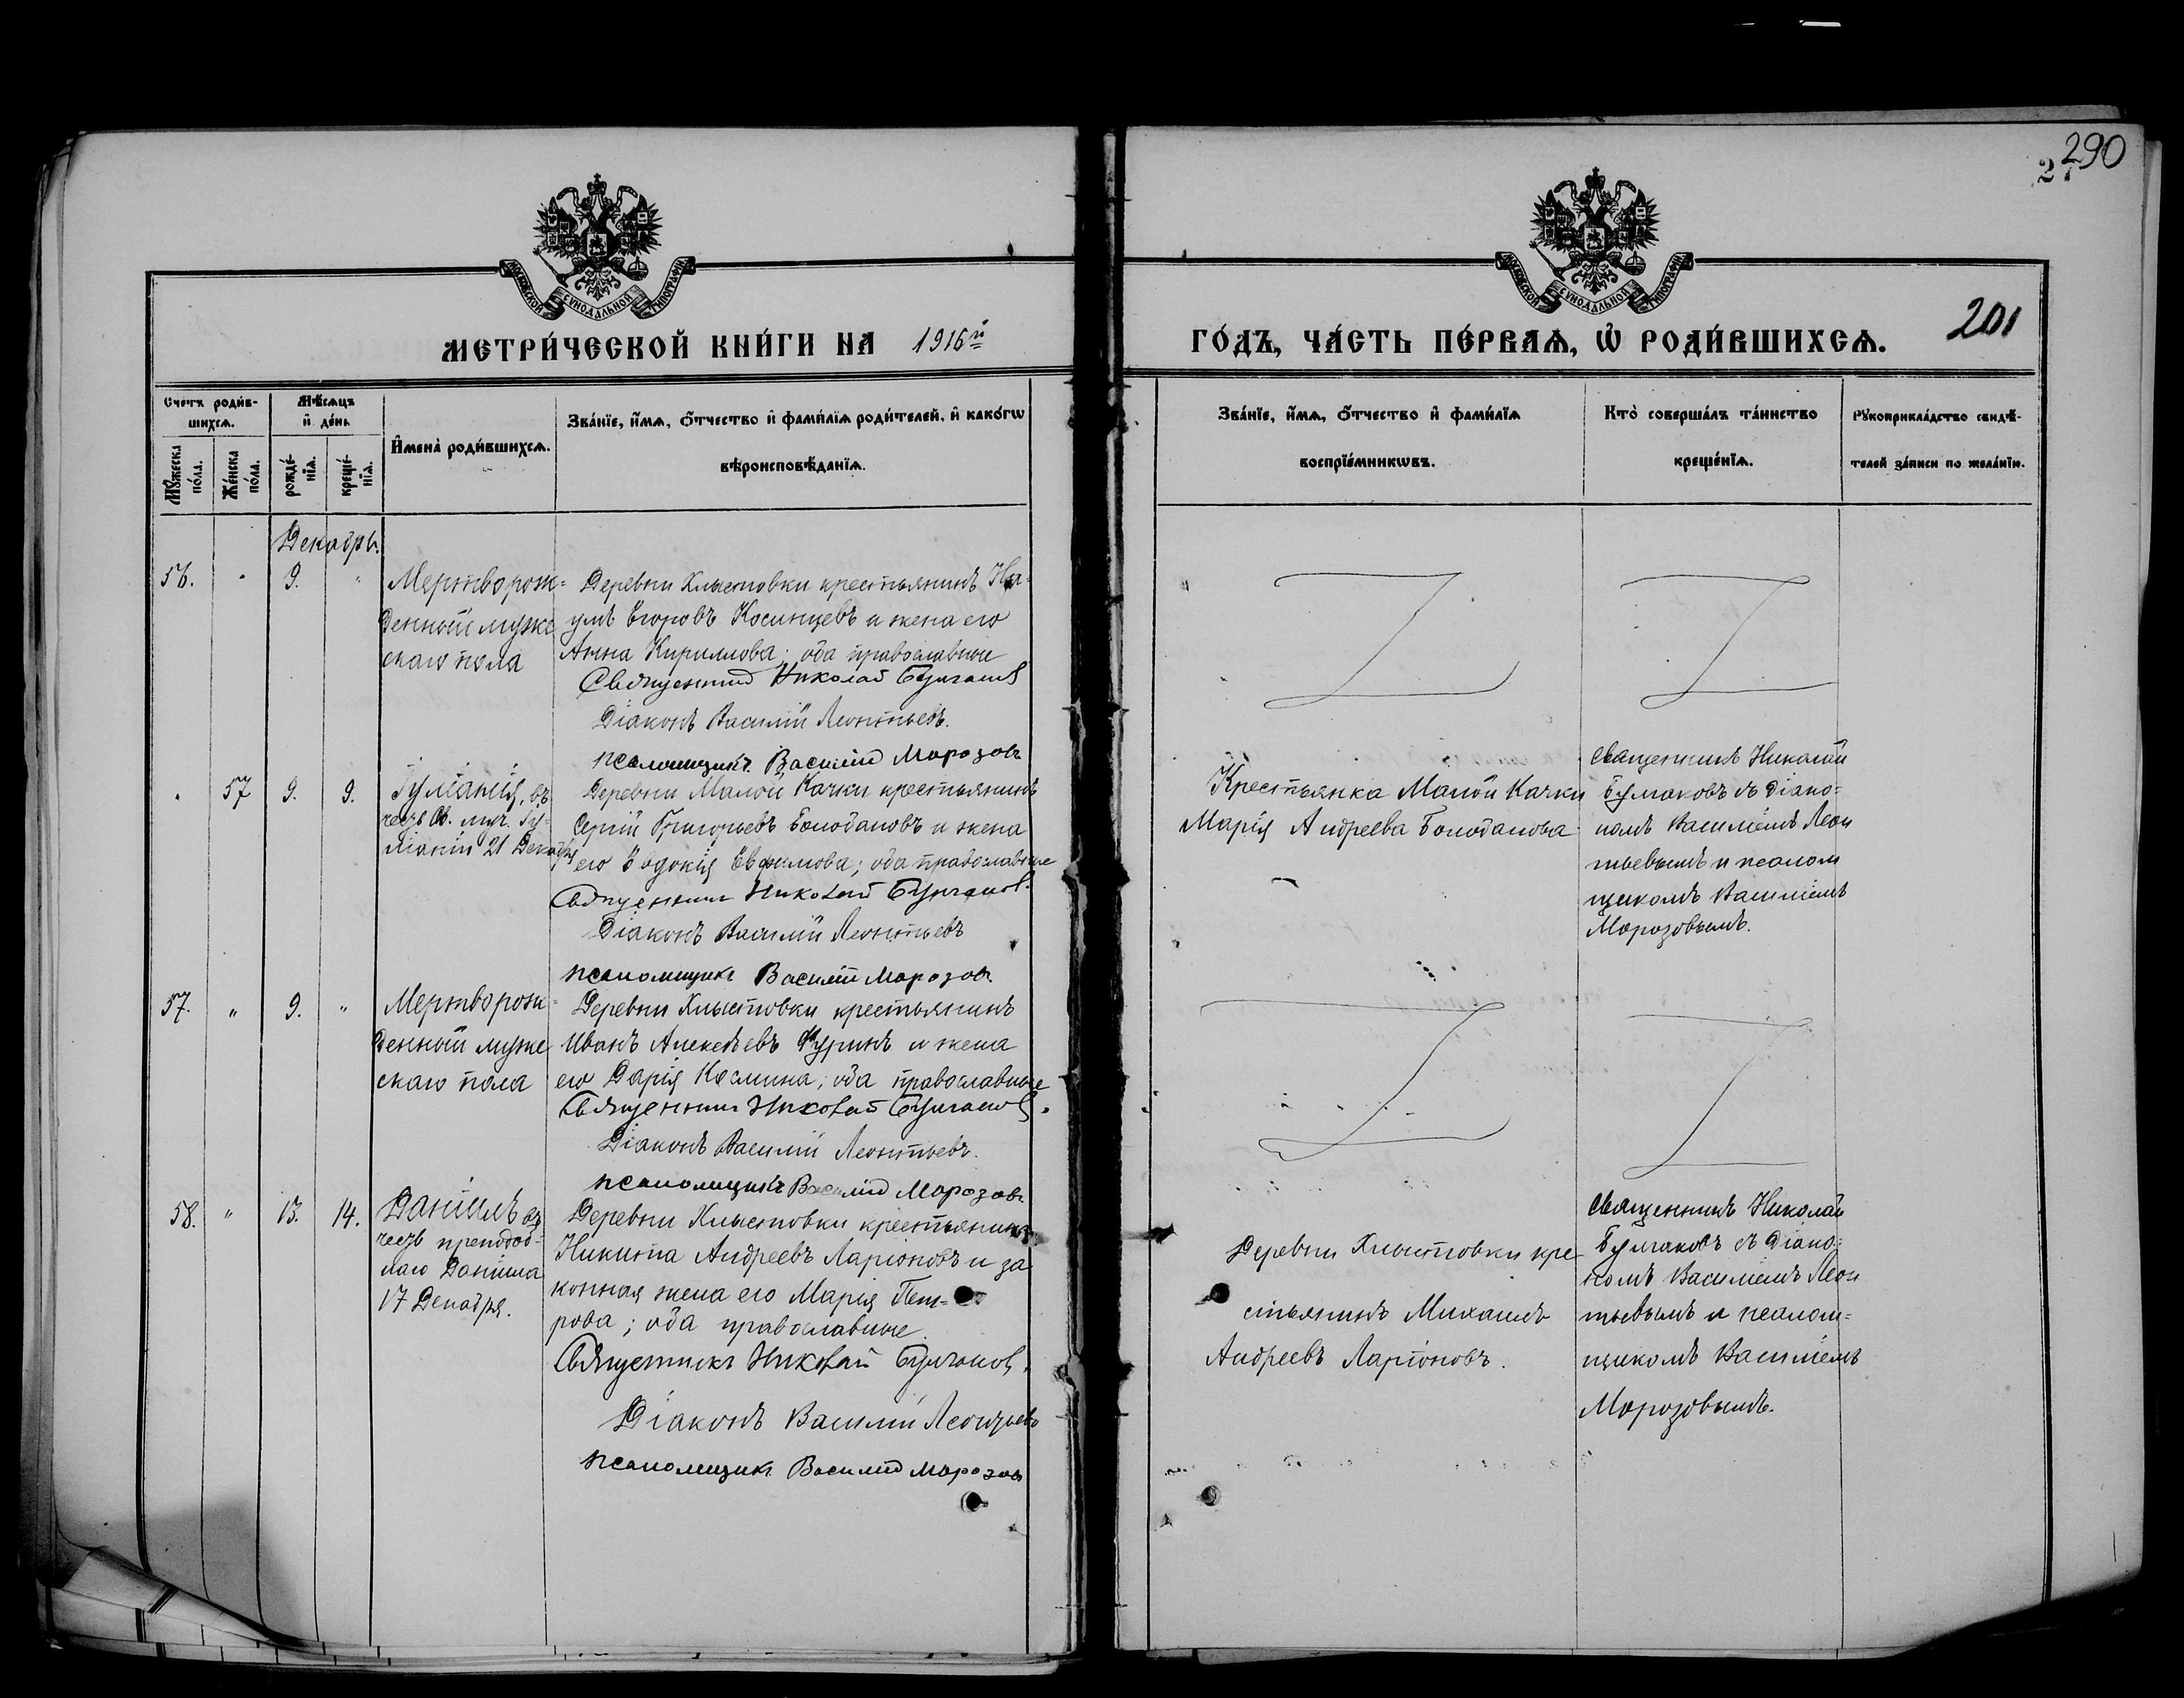 290
МОСКОВСКОЙ СѴНОДАЛЬНОЙ ТИПОГРАФІИ
МОСКОВСКОЙ СѴНОДАЛЬНОЙ ТИПОГРАФІИ
201
МЕТРИ́ЧЕСКОЙ КНИ́ГИ НА 1916й
ГО́ДЪ, ЧА́СТЬ ПЕ́РВАѦ, Ѡ҆ РОДИ́ВШИХСѦ.
Сче́тъ роди́в-
шихсѧ.
Мꙋ́жеска по́ла.
Же́нска по́ла.
Мѣ́сѧцъ
и҆ де́нь
рожде́-
нїѧ.
креще́-
нїѧ.
И҆мена̀ роди́вшихсѧ.
Зва́нїе, и҆́мѧ, ѻ҆́тчество и҆ фами́лїѧ роди́телей, и҆ како́гѡ
вѣроисповѣ́данїѧ.
Зва́нїе, и҆́мѧ, ѻ҆́тчество и҆ фами́лїѧ
воспрїе́мникѡвъ.
Кто̀ соверша́лъ та́инство
креще́нїѧ.
Рꙋкоприкла́дство свидѣ́-
телей за́писи по жела́нїю.
Декабрь.
56. " 9. "
Мертворож=
денный муже
скаго пола
Деревни Хлыстовки крестьянинъ На-
умъ Егоровъ Косинцевъ и жена его
Анна Кириллова; оба православные
Священникъ Николай Булгаковъ
Діаконъ Василій Леонтьевъ.
псаломщикъ Василій Морозовъ
" 57 9. 9.
Іуліанія, въ
честь Св. муч. Іу-
ліаніи 21 Декабря
Деревни Малой Качки крестьянинъ
Сергій Григорьевъ Болодановъ и жена
его Евдокія Евфимова; оба православные
Священникъ Николай Булгаковъ.
Діаконъ Василій Леонтьевъ
псаломщикъ Василій Морозовъ.
Крестьянка Малой Качки
Марія Андреева Болоданова
Священникъ Николай
Булгаковъ съ Діако=
номъ Василіемъ Леон
тьевымъ и псалом
щикомъ Василіемъ
Морозовымъ.
57. " 9. "
Мертворож=
денный муже
скаго пола
Деревни Хлыстовки крестьянинъ
Иванъ Алексѣевъ Фуринъ и жена
его Дарія Косьмина; оба православные
Священникъ Николай Булгаковъ.
Діаконъ Василій Леонтьевъ.
псаломщикъ Василій Морозовъ.
58. " 13. 14.
Даніилъ въ
честь преподоб-
наго Даніила
17 Декабря.
Деревни Хлыстовки крестьянинъ
Никита Андреевъ Ларіоновъ и за
конная жена его Марія Пет=
рова; оба православные.
Священникъ Николай Булгаковъ,
Діаконъ Василій Леонтьевъ
псаломщикъ Василій Морозовъ
Деревни Хлыстовки кре-
стьянинъ Михаилъ
Андреевъ Ларіоновъ.
Священникъ Николай
Булгаковъ съ Діако=
номъ Василіемъ Леон
тьевымъ и псалом=
щикомъ Василіемъ
Морозовымъ.